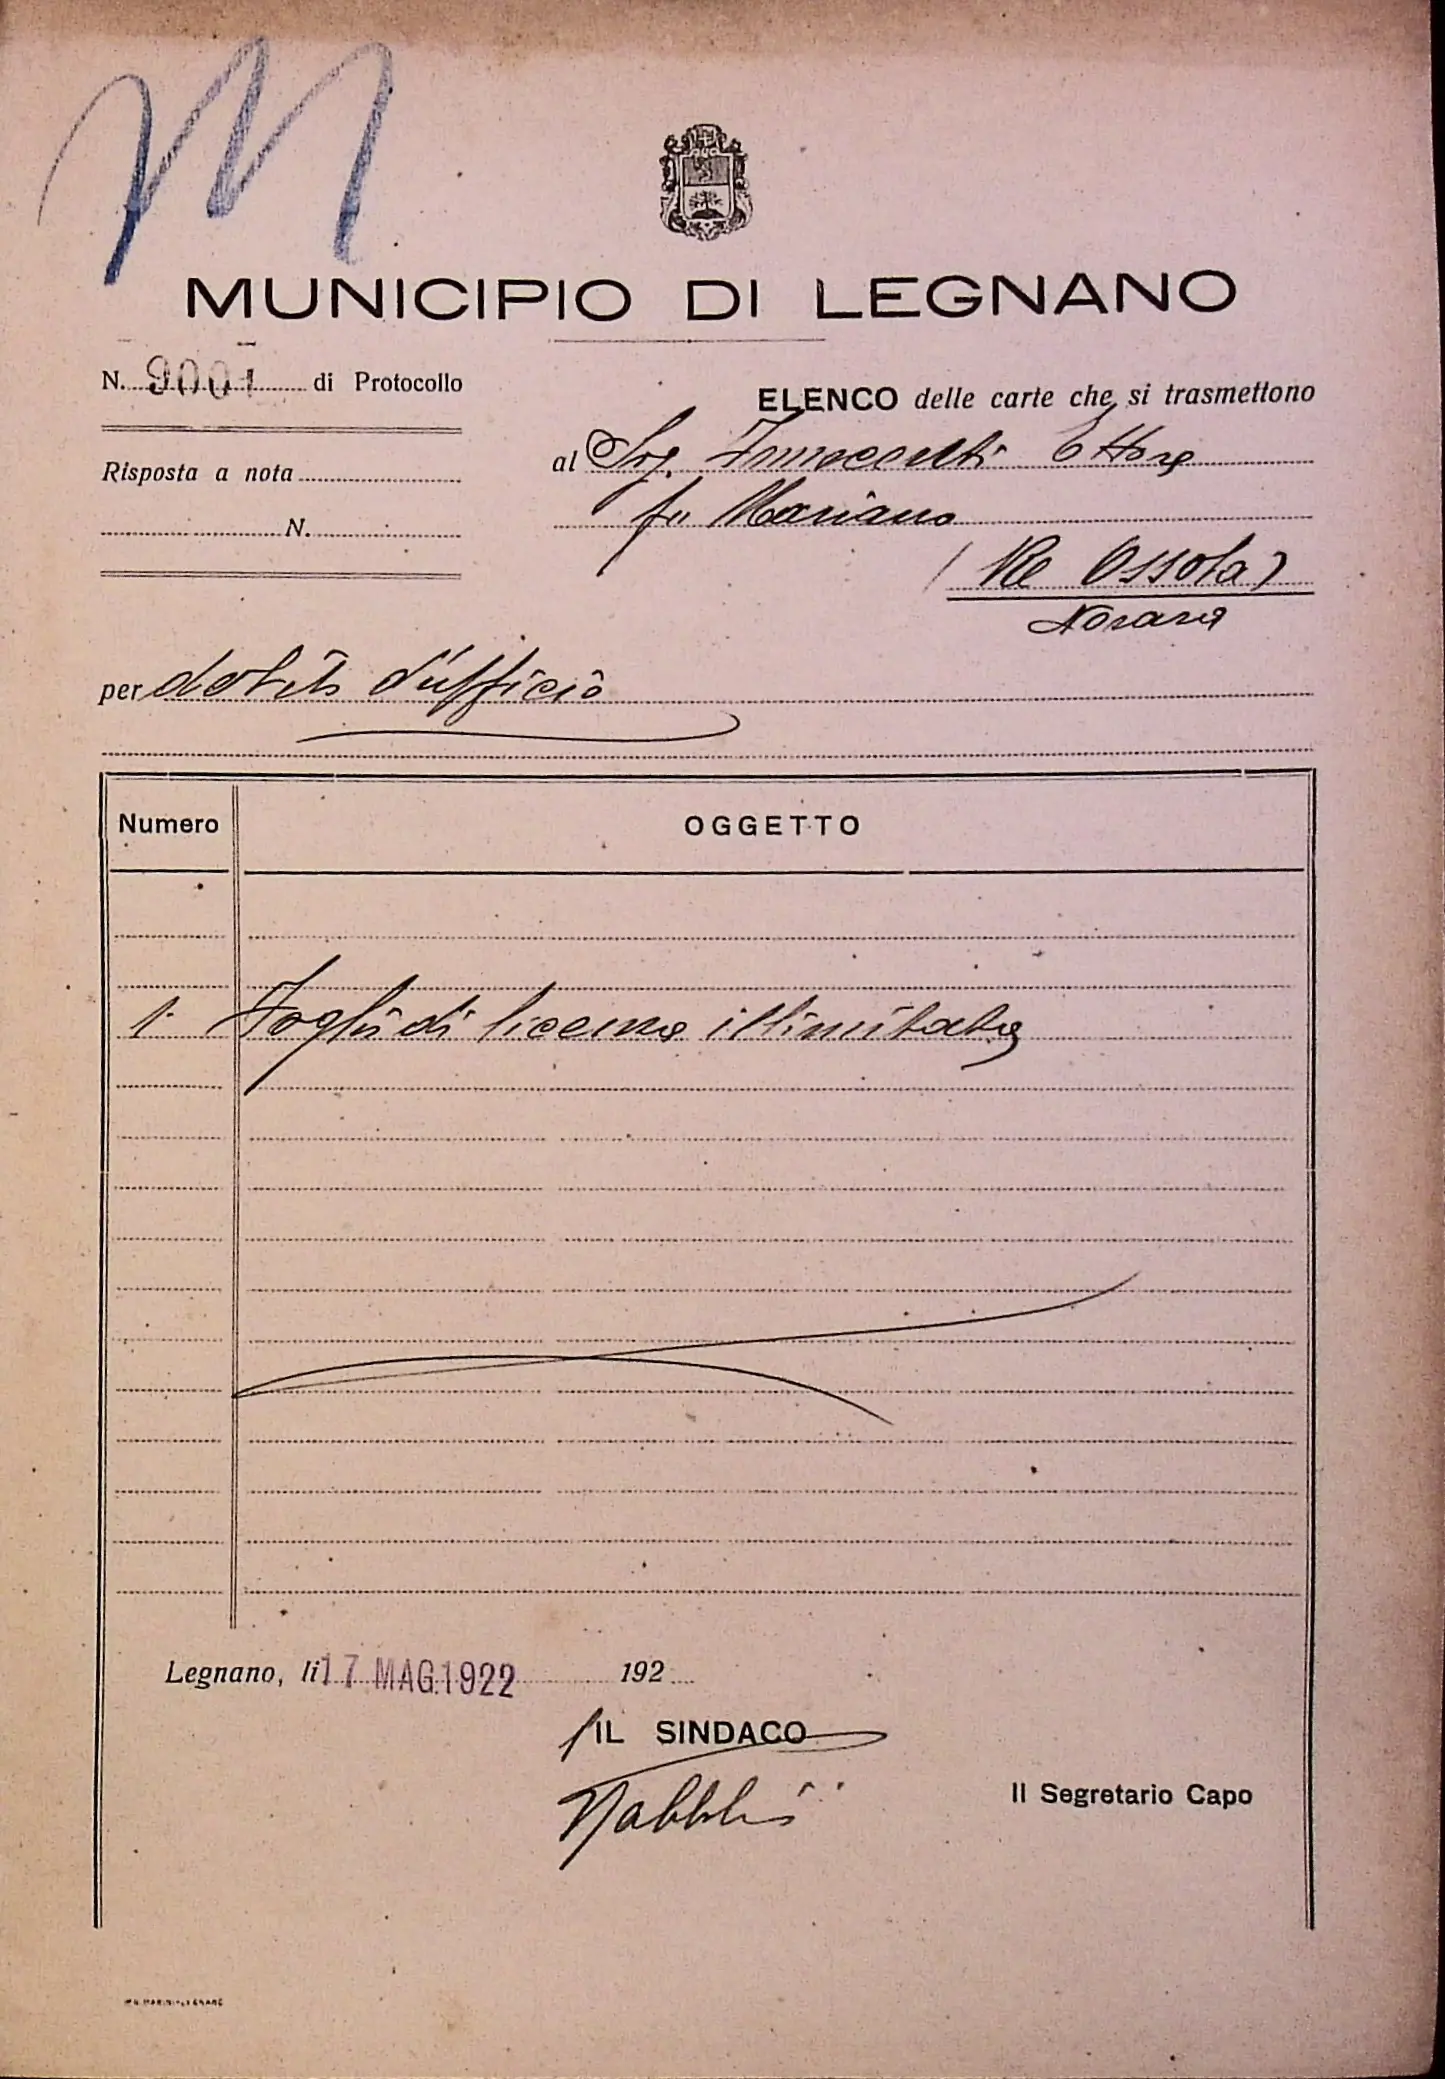 M
MUNICIPIO DI LEGNANO
N. 9001 di Protocollo
ELENCO delle carte che si trasmettono
al Sig. Innocenti Ettore
fu Mariano
(Re Ossola)
Novara
Risposta a nota
N.
per debito d'ufficio
Numero OGGETTO
1. Foglio di licenza illimitata
Legnano, li 17 MAG. 1922 192
IL SINDACO
Il Segretario Capo